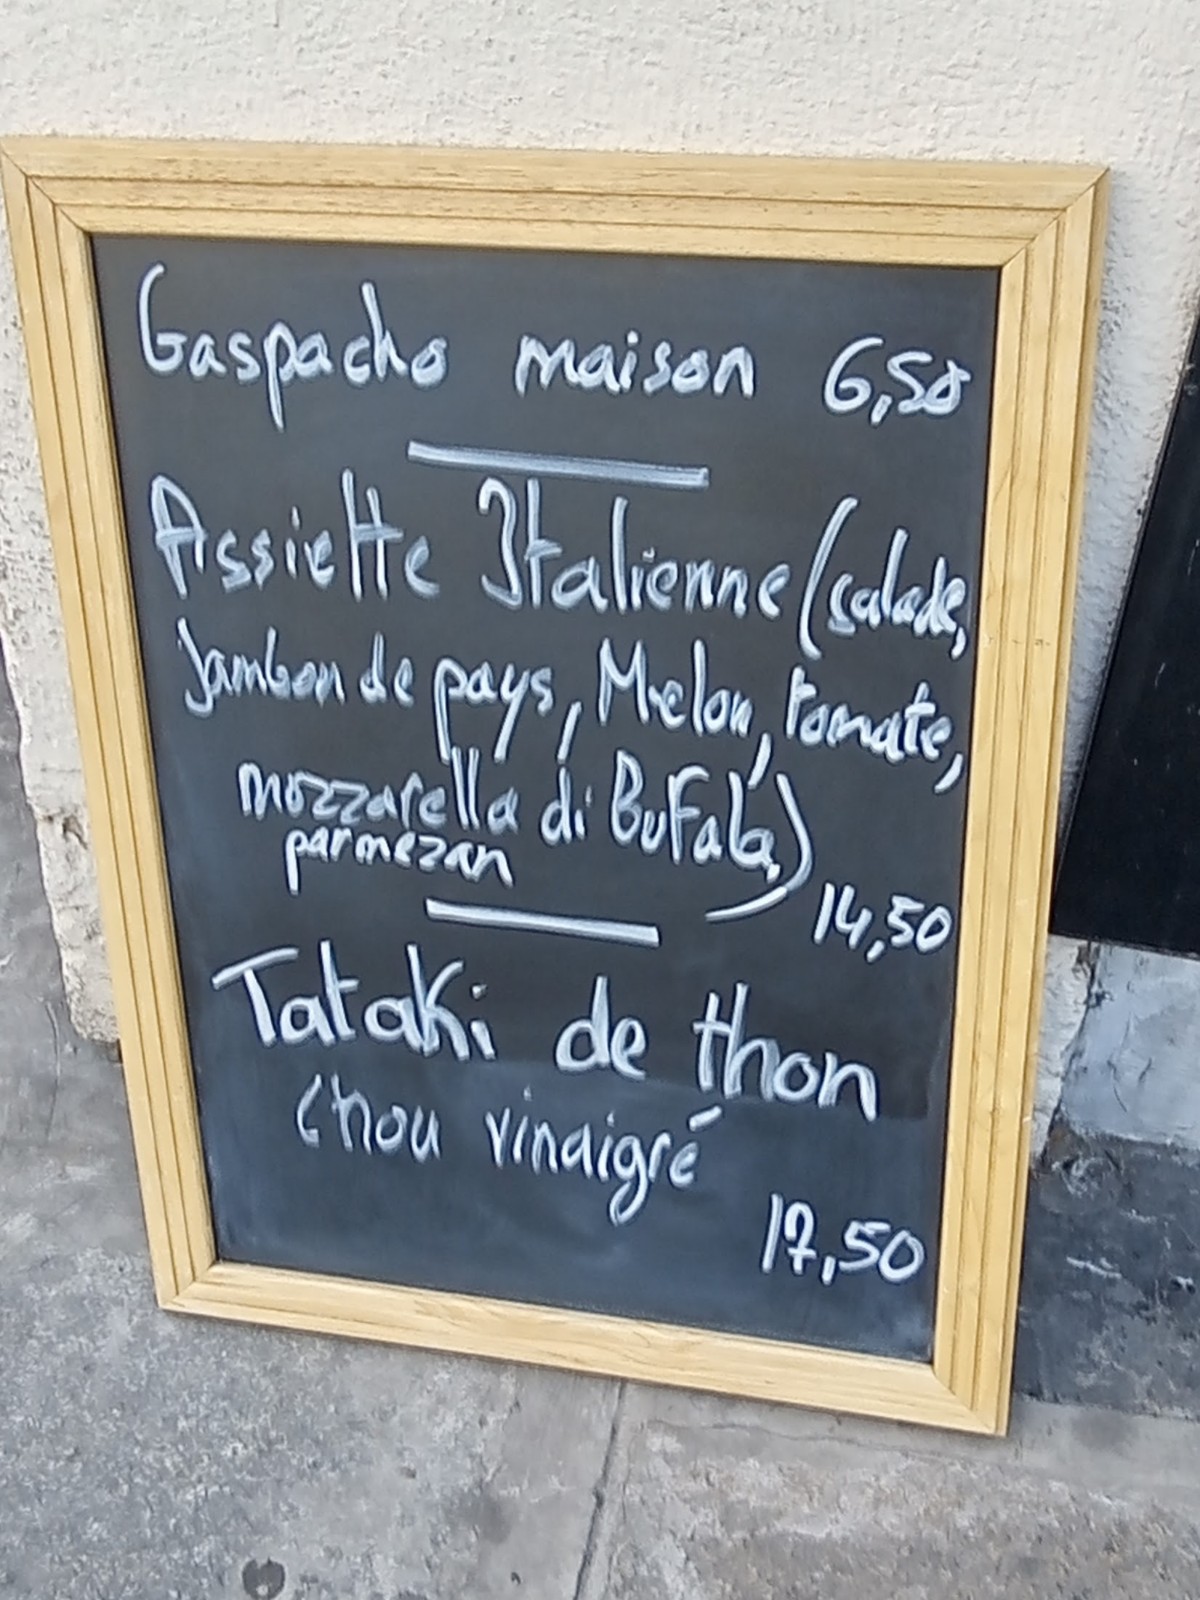 Gaspacho maison 6,50
Assiette Italienne (salade,
Jambon de pays, Melon, tomate,
mozzarella di BuFala,)
parmezan
14,50
Tataki de thon
chou vinaigré
17,50